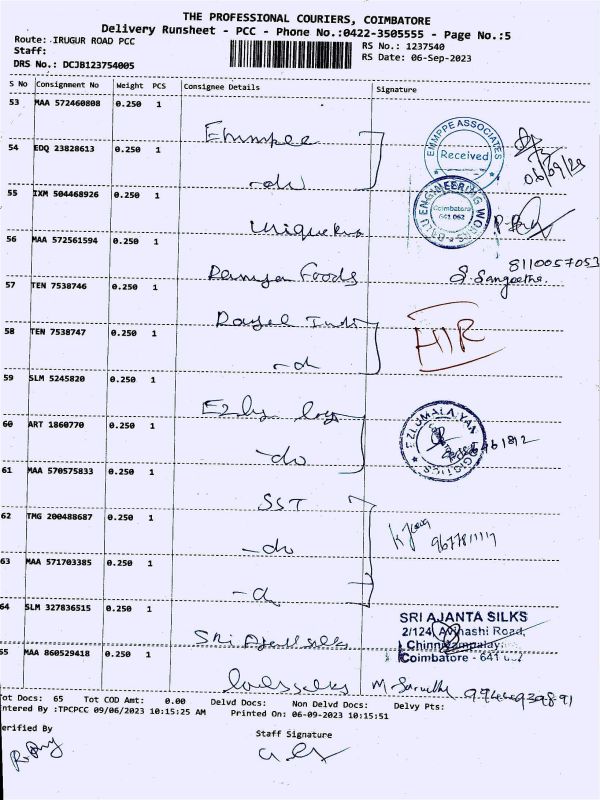 THE PROFESSIONAL COURIERS, COIMBATORE
Delivery Runsheet - PCC - Phone No.:0422-3505555 - Page No.:5
Route: IRUGUR ROAD PCC
RS No.: 1237540
Staff:
RS Date: 06-Sep-2023
DRS No.: DCJB123754005
S No Consignment No Weight PCS Consignee Details Signature
53 MAA 572460808 0.250 1
Emmpee
EMMPPE ASSOCIATES
Received
06/09/23
54 EDQ 23828613 0.250 1
-do
55 IXM 504468926 0.250 1
ENGINEERING WORKS
Coimbatore
641 062
56 MAA 572561594 0.250 1
Ramya Foods
8110057053
S. Sangeetha.
57 TEN 7538746 0.250 1
58 TEN 7538747 0.250 1
-d
59 SLM 5245820 0.250 1
60 ART 1860770 0.250 1
EZLUMALAIYAN
LOGISTICS
-do
61 MAA 570575833 0.250 1
SST
62 TMG 200488687 0.250 1
-do
63 MAA 571703385 0.250 1
-d
64 SLM 327836515 0.250 1
Sri
SRI AJANTA SILKS
2/124, Avinashi Road,
Chinniampalayam
Coimbatore - 641
65 MAA 860529418 0.250 1
Tot Docs: 65 Tot COD Amt: 0.00 Delvd Docs: Non Delvd Docs: Delvy Pts:
Entered By :TPCPCC 09/06/2023 10:15:25 AM Printed On: 06-09-2023 10:15:51
Verified By
Staff Signature